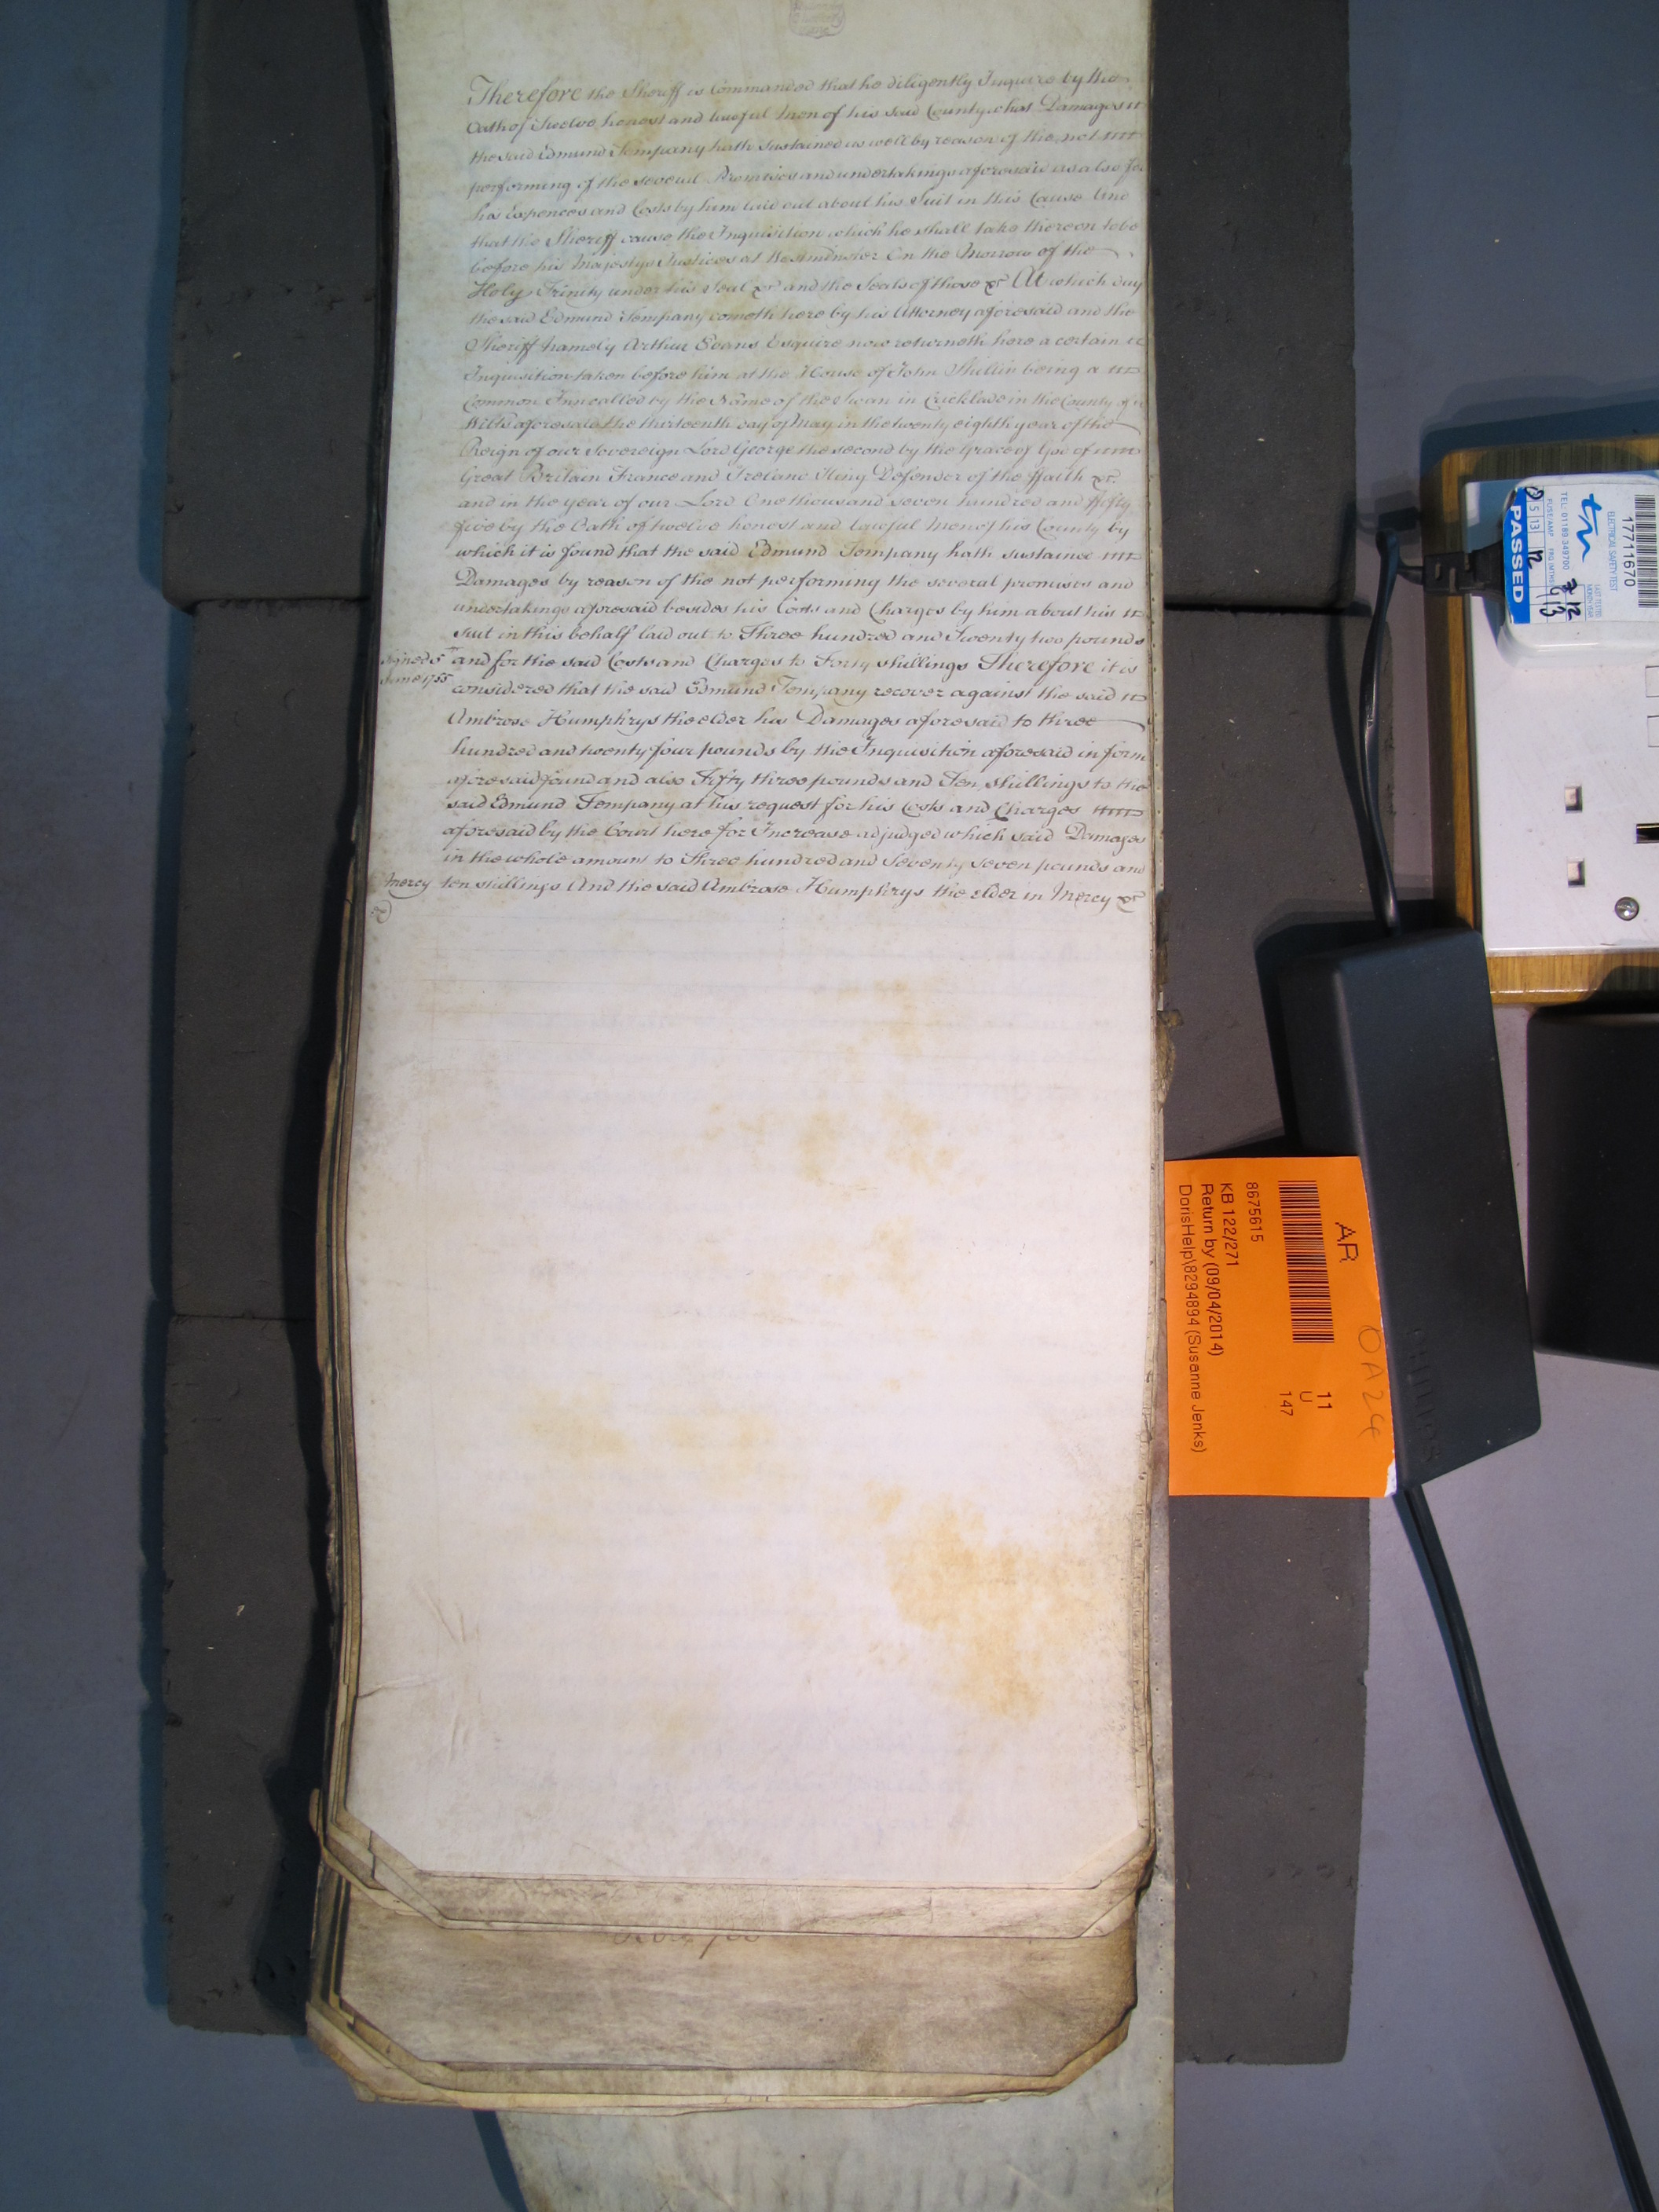 Therefore the Sheriff is Commanded that he diligently Inquire by the
Oath of Twelve honest and lawful Men of his said County what Damages
the said Edmund Tempany hath sustained as well by reason of the not
performing of the several Promises and undertakings aforesaid as also for
his Expences and Costs by him laid out about his Suit in this Cause And
that the Sheriff cause the Inquisition which he shall take thereon to be
before his Majestys Justices at Westminster On the Morrow of the
Holy Trinity under his Seal &c and the Seals of those &c At which day
the said Edmund Tempany cometh here by his Attorney aforesaid and the
Sheriff namely Arthur Evans Esquire now returneth here a certain
Inquisition taken before him at the House of John being a
Common Inn called by the Name of the Swan in Cricklade in the County of
Wilts aforesaid the thirteenth day of May in the twenty eighth year of the
Reign of our Sovereign Lord George the second by the Grace of God of
Great Britain France and Ireland King Defender of the ffaith &c
and in the year of our Lord One thousand seven hundred and fifty
five by the Oath of twelve honest and lawful Men of his County by
which it is found that the said Edmund Tempany hath sustained
Damages by reason of the not performing the several promises and
undertakings aforesaid besides his Costs and Charges by him about his
suit in this behalf laid out to Three hundred and Twenty two pounds
Signed 5th
June 1755
and for the said Costs and Charges to Forty shillings Therefore it is
considered that the said Edmund Tempany recover against the said
Ambrose Humphrys the elder his Damages aforesaid to three
hundred and twenty four pounds by the Inquisition aforesaid in form
aforesaid found and also Fifty three pounds and Ten shillings to the
said Edmund Tempany at his request for his Costs and Charges
aforesaid by the Court here for Increase adjudged which said Damages
in the whole amount to Three hundred and Seventy seven pounds and
Mercy
ten shillings And the said Ambrose Humphrys the elder in Mercy &c
AR
11
U
147
8675615
KB 122/271
Return by (09/04/2014)
DorisHelp\8294894 (Susanne Jenks)
17711670
ELECTRICAL SAFETY TEST
TEL: 01189 349700
PASSED
PHILIPS